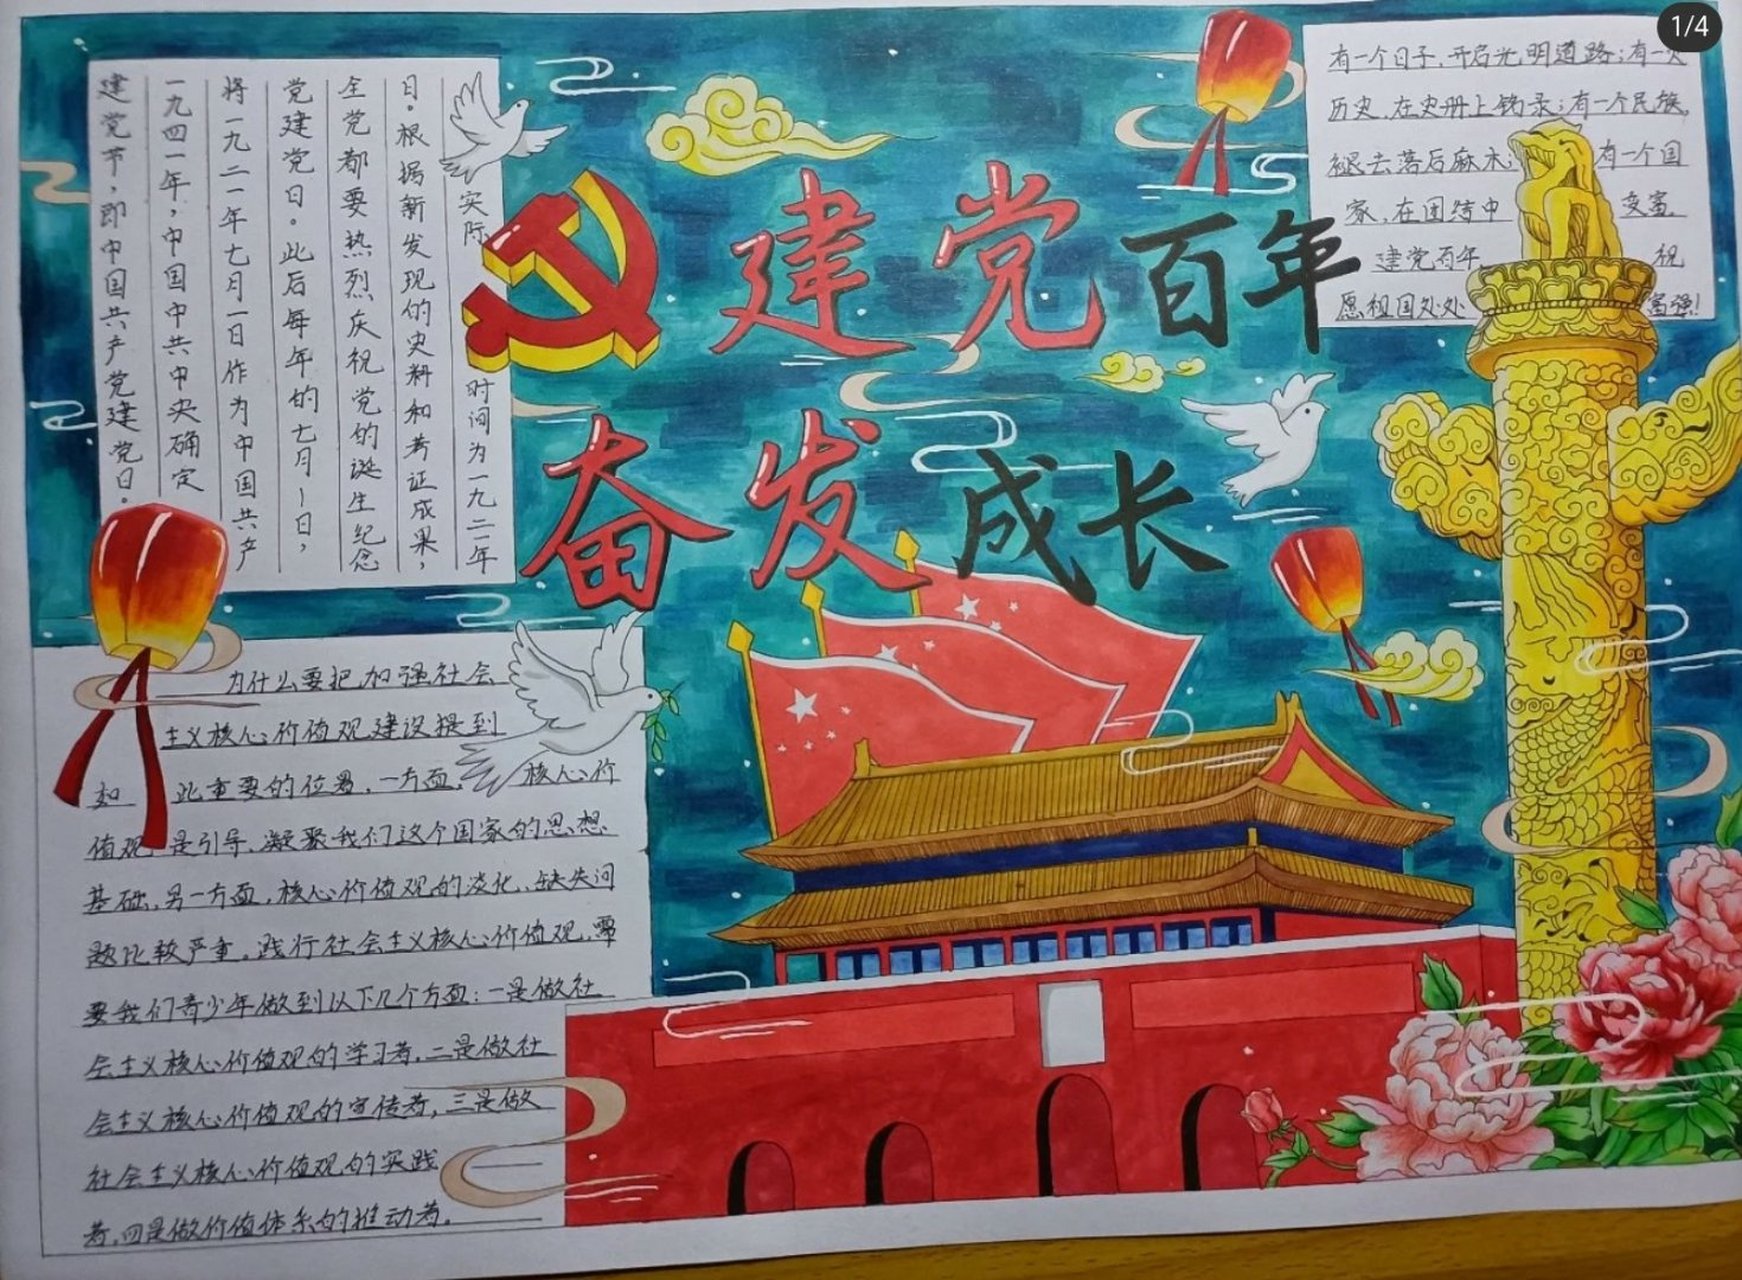 建党节，即中国共产党建党日。
一九四一年，中国中共中央确定
将一九二一年七月一日作为中国共产
党建党日。此后每年的七月一日，
全党都要热烈庆祝党的诞生纪念
日。根据新发现的史料和考证成果，
实际 时间为一九二一年
建党百年
奋发成长
1/4
有一个日子，开启光明道路；有一
历史，在史册上铭录；有一个民族，
褪去落后麻木；有一个国
家，在团结中 变富。
建党百年 祝
愿祖国处处 富强！
为什么要把加强社会
主义核心价值观建设提到
如 此重要的位置，一方面，核心价
值观，是引导、凝聚我们这个国家的思想
基础，另一方面，核心价值观的淡化、缺失问
题比较严重。践行社会主义核心价值观，需
要我们青少年做到以下几个方面：一是做社
会主义核心价值观的学习者，二是做社
会主义核心价值观的宣传者，三是做
社会主义核心价值观的实践
者，四是做价值体系的推动者。